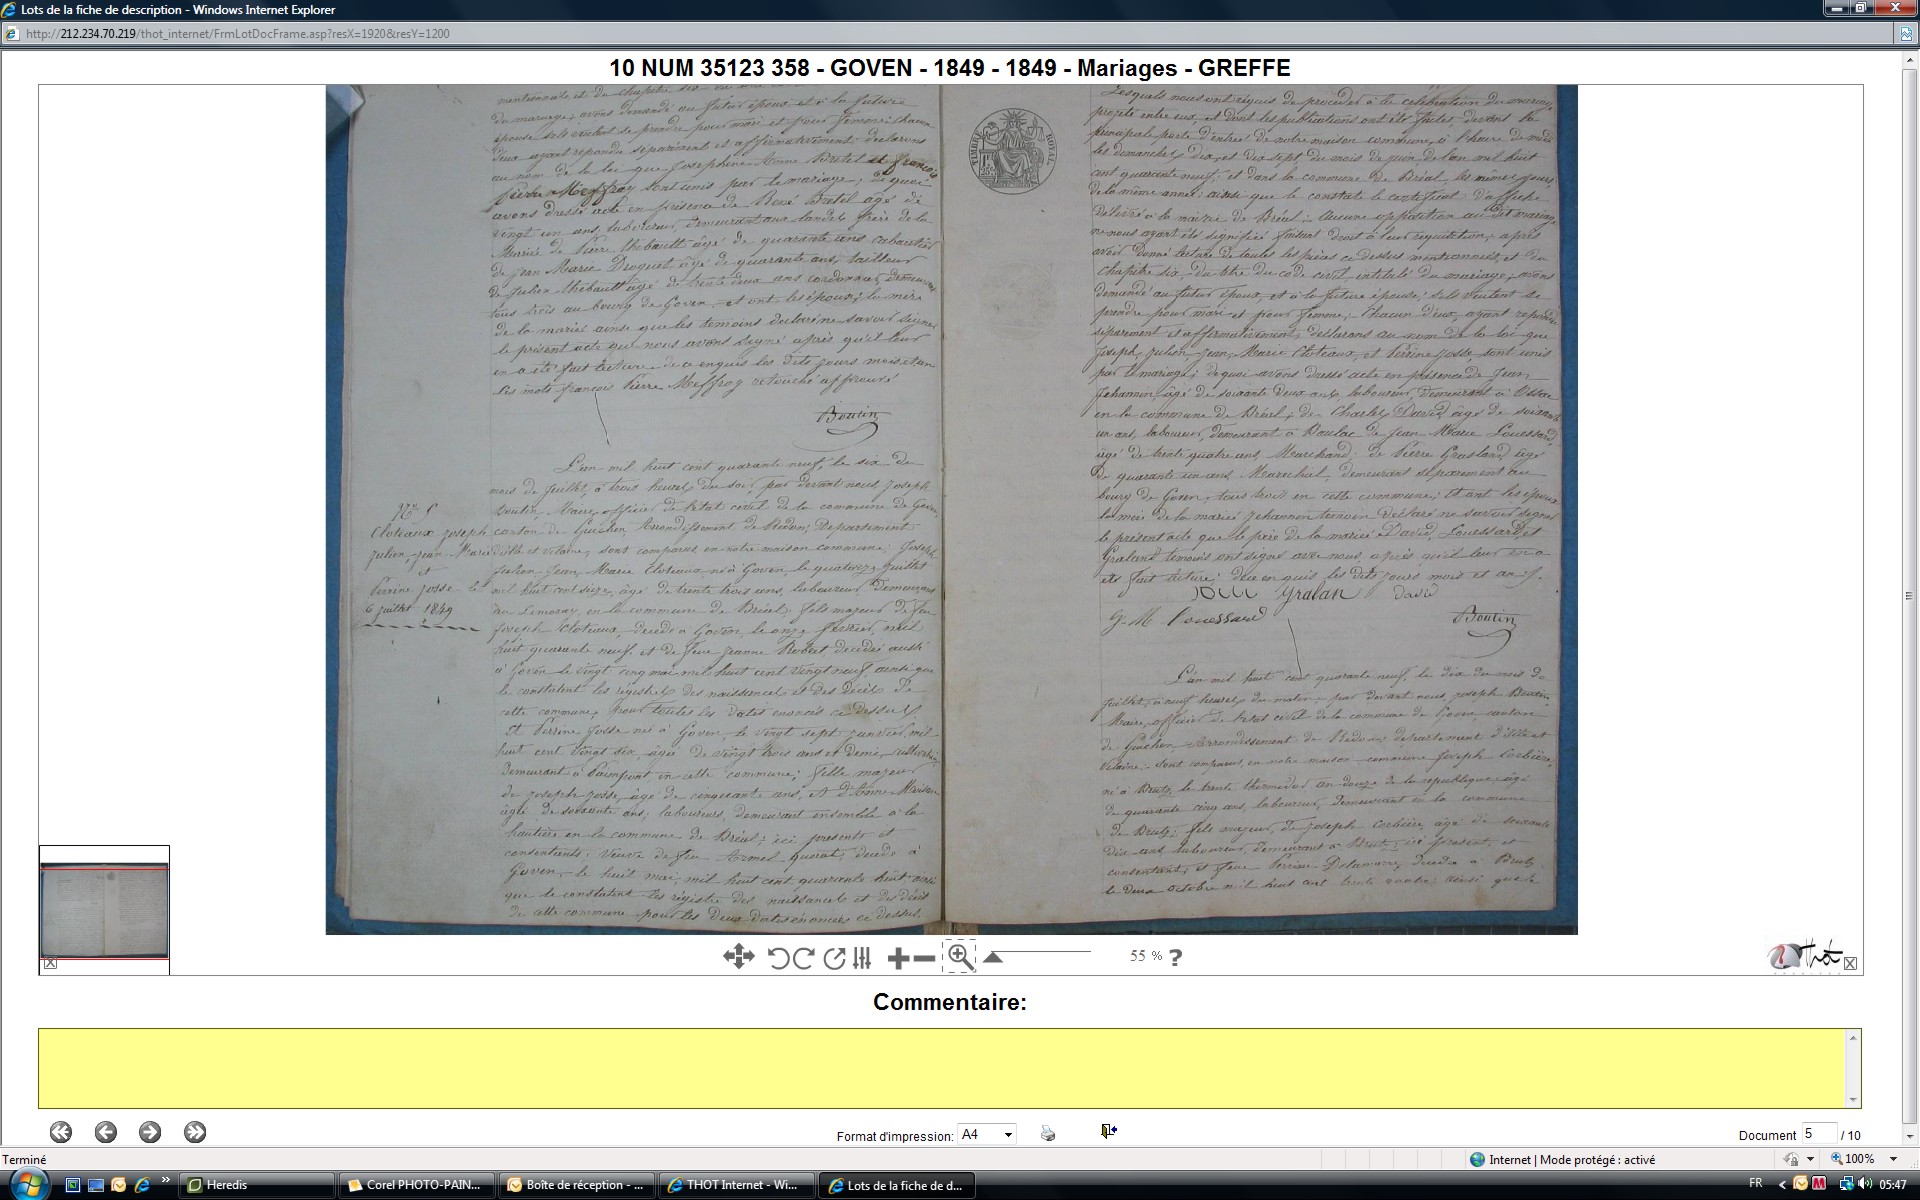 Lots de la fiche de description - Windows Internet Explorer
http://212.234.70.219/thot_internet/FrmLotDocFrame.asp?resX=1920&resY=1200
10 NUM 35123 358 - GOVEN - 1849 - 1849 - Mariages - GREFFE
du mariage, avons demandé au futur époux et à la future
épouse s'ils veulent se prendre pour mari et pour femme; chacun
d'eux ayant répondu séparément et affirmativement déclarons
au nom de la loi que Josephine Anne Bretel et françois
pierre Meffroy sont unis par le mariage; de quoi
avons dressé acte en présence de René Bretel agé de
vingt un ans, laboureur, demeurant aux landes frère de la
Mariée de Pierre thébault âgé de quarante ans cabaretier
de jean Marie Droguet âgé de quarante ans, tailleur
de Julien thébault âgé de trente deux ans cordonnier, demeurant
tous trois au bourg de Goven, et ont les époux; la mère
de la mariée ainsi que les temoins declaré ne savoir signer
le présent acte que nous avons signé après qu'il leur
en a été fait lecture
Les mots françois Pierre Meffroy retouché approuvé
Boutin
L'an mil huit cent quarante neuf, le six du
mois de Juillet, à trois heures du soir, par devant nous, Joseph
Boutin, Maire, officier de l'état civil de la commune de Goven,
canton de Guichen, Arrondissement de Redon, Departement
d'ille et vilaine, sont comparus en notre maison commune; Joseph
Julien Jean, Marie Cloteaux, né à Goven, le quatorze juillet
mil huit cent seize, âgé de trente trois ans, laboureur, demeurant
en la commune de Bréal; fils majeur de feu
Joseph Cloteaux, décédé à Goven, le onze fevrier, mil
huit quarante neuf, et de feue Jeanne Robert decedée aussi
à Goven le vingt cinq mai mil huit cent vingt neuf, ainsi que
le constatent les régistres des naissances et des décès de
cette commune, pour toutes les dates enoncés ci dessus
Et Perrine Josse née à Goven, le vingt sept janvier, mil
huit cent vingt six, âgée de vingt trois ans et demi, cultivatrice,
demeurant à Paimpont, en cette commune; fille majeure
de Joseph Josse, âgé de cinquante ans, et d'Anne
âgée de soixante ans; laboureurs, demeurant ensemble à la
hautière en la commune de Bréal; ici présents et
consentants; veuve de feu Armel decedé à
Goven, le huit mai, mil huit cent quarante huit ainsi
que le constatent les régistre des naissances et des décès
de cette commune pour les deux dates énoncées ci dessus.
Cloteaux Joseph
Julien, Jean-Marie
et
Perrine Josse le
6 juillet 1849
TIMBRE ROYAL
Lesquels nous ont réquis de procéder à la célébration du mariage
projeté entre eux, et dont les publications ont été faites, devant la
principale porte d'entrée de notre maison commune, à l'heure de midi
les dimanches dix, et dix sept, du mois de juin, de l'an mil huit
cent quarante neuf; et dans la commune de Bréal, les mêmes jours,
de la même année; ainsi que le constate le certificat d'affiche
délivré à la mairie de Bréal; aucune opposition au dit mariage
ne nous ayant été signifié faisant droit à leur requisition, après
avoir donné lecture de toutes les pièces ci dessus mentionnées, et du
Chapitre six, du titre du code civil, intitulé du mariage; avons
demandé au futur époux et à la future épouse; s'ils veulent se
prendre pour mari et pour femme; chacun d'eux, ayant répondu
séparément et affirmativement, déclarons au nom de la loi que
Joseph, Julien, Jean, Marie Cloteaux, et Perrine Josse, sont unis
par le mariage; de quoi avons dressé acte en présence de Jean
Jehannin, âgé de soixante deux ans, laboureur, demeurant à
en la commune de Bréal; de Charles David, âgé de soixante
un ans, laboureur, demeurant à Baulac de Jean Marie Louessard,
âgé de trente quatre ans, Marchand; de Pierre Graland, âgé
de quarante un ans, Marechal, demeurant séparément au
bourg de Goven, tous trois en cette commune; et ont les époux
la mère de la mariée Jehannin temoin déclaré ne savoir signer
le présent acte que le père de la mariée David, Louessard et
Graland temoins ont signé avec nous, après qu'il leur en a
été fait lecture; les dits jours mois et an.
Gralan David
J. M. Louessard Boutin
L'an mil huit cent quarante neuf, le dix du mois de
juillet, à neuf heures du matin, par devant nous, Joseph Boutin,
Maire, officier de l'état civil de la commune de Goven, canton
de Guichen, Arrondissement de Redon, departement d'ille et
Vilaine, sont comparus, en notre maison commune Joseph Corbière,
né à Brutz, le trente thermidor an douze de la republique âgé
de quarante cinq ans, laboureur, demeurant en la commune
de Brutz; fils majeur, de Joseph Corbière, âgé de soixante
dix ans, laboureur, demeurant à Brutz; ici présent, et
consentant, et feue Perrine Delamarre, décédée à Brutz
le deux octobre mil huit cent trente quatre; ainsi que le
55 % ?
Thot
Commentaire:
Format d'impression: A4
Document 5 / 10
Terminé
Internet | Mode protégé : activé
100%
Heredis
Corel PHOTO-PAIN...
Boîte de réception - ...
THOT Internet - Wi...
Lots de la fiche de d...
FR
05:47